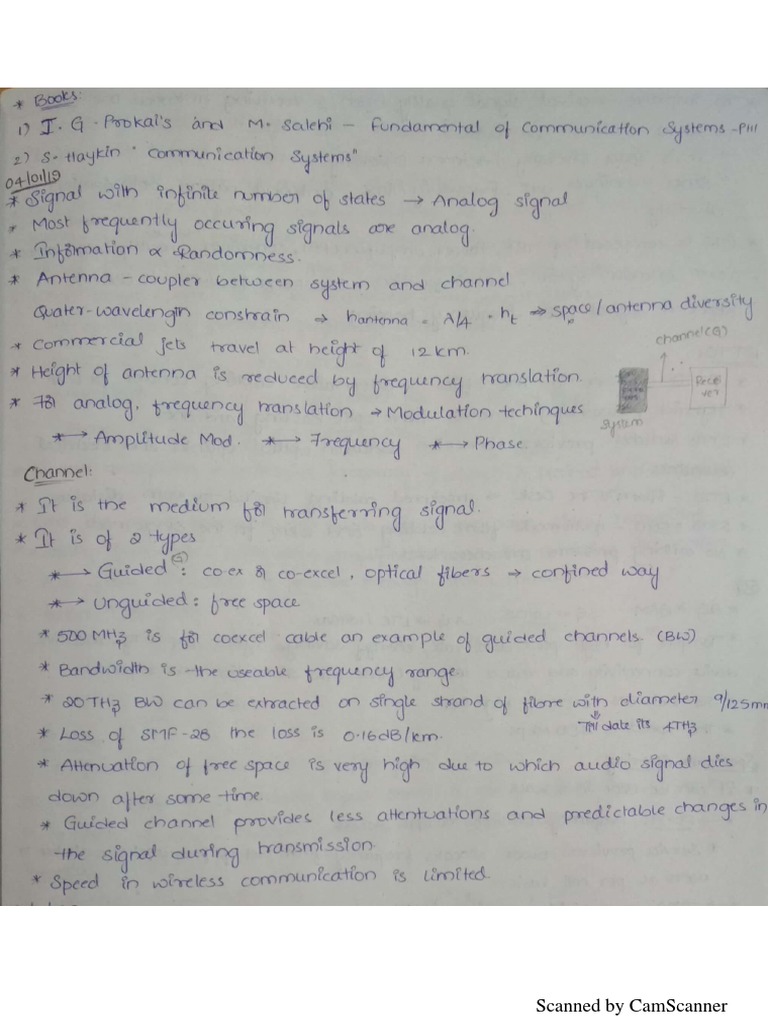 * Books:
1) I. G. Prokai's and M. Salehi – Fundamental of Communication Systems – PHI
2) S. Haykin "Communication Systems"
04/01/19
* Signal with infinite number of states → Analog signal
* Most frequently occuring signals are analog.
* Information ∝ Randomness.
* Antenna – coupler between system and channel
Quater-wavelengin constrain → hantenna = λ/4 = ht ⇒ space/antenna diversity
* Commercial jets travel at height of 12 km.
channel(G)
* Height of antenna is reduced by frequency translation.
Rece
ver
* For analog, frequency translation → Modulation techinques
System
*→ Amplitude Mod. *→ Frequency *→ Phase.
Channel:
* It is the medium for transferring signal.
* It is of 2 types
*→ Guided(G): co-ex or co-excel, optical fibers → confined way
*→ Unguided: free space
* 500 MHz is for coexcel cable an example of guided channels. (BW)
* Bandwidth is the useable frequency range
* 20 THz BW can be extracted on single strand of fibre with diameter 9/125mm
Till date its 4THz
* Loss of SMF-28 the loss is 0.16dB/km.
* Attenuation of free space is very high due to which audio signal dies
down after some time.
* Guided channel provides less attentuations and predictable changes in
the signal during transmission
* Speed in wireless communication is limited.
Scanned by CamScanner